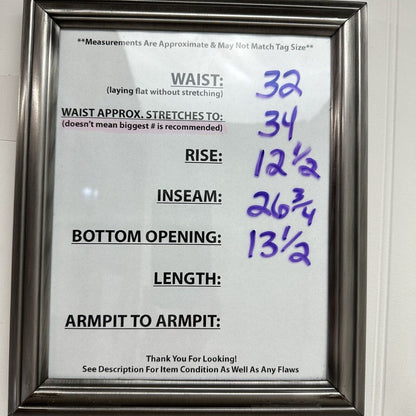 **Measurements Are Approximate & May Not Match Tag Size**
WAIST: 32
(laying flat without stretching)
WAIST APPROX. STRETCHES TO: 34
(doesn't mean biggest # is recommended)
RISE: 12 1/2
INSEAM: 26 3/4
BOTTOM OPENING: 13 1/2
LENGTH:
ARMPIT TO ARMPIT:
Thank You For Looking!
See Description For Item Condition As Well As Any Flaws